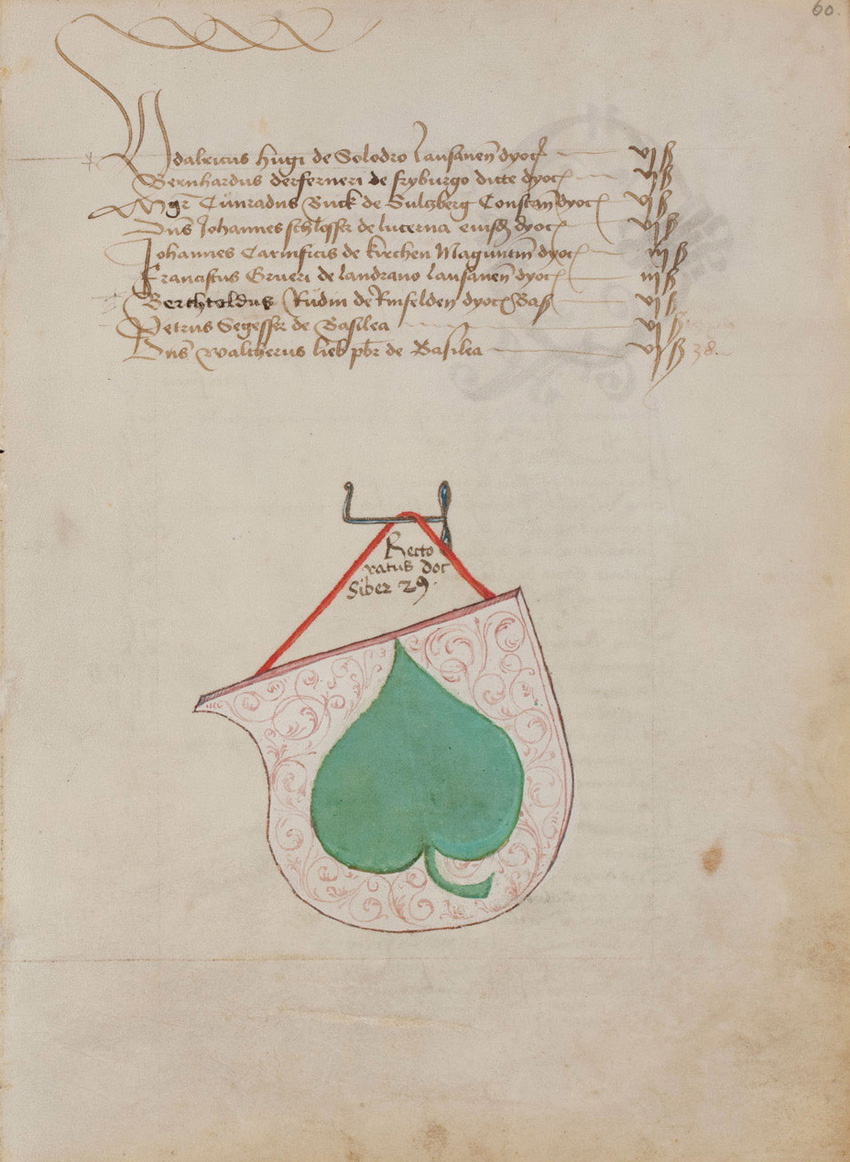 60.
Udalricus hugi de Solodro Lausanen dyoc vj ß
Bernhardus derferneri de fryburgo dicte dyoc vj ß
Mgr Cünradus Buck de Sultzberg Constan dyoc vj ß
Dns Johannes schlosser de lucerna eiusd dyoc vj ß
Johannes Carnificis de kirchen Maguntin dyoc iij ß
Franciscus Grueri de landrano lausanen dyoc iij ß
Berchtoldus Rüdin de Rinfelden dyoc Bas vj ß
Petrus Segesser de Basilea vj ß
Dns waltherus lieb pbr de Basilea vj ß 38.
Recto
ratus doc
Siber 29.